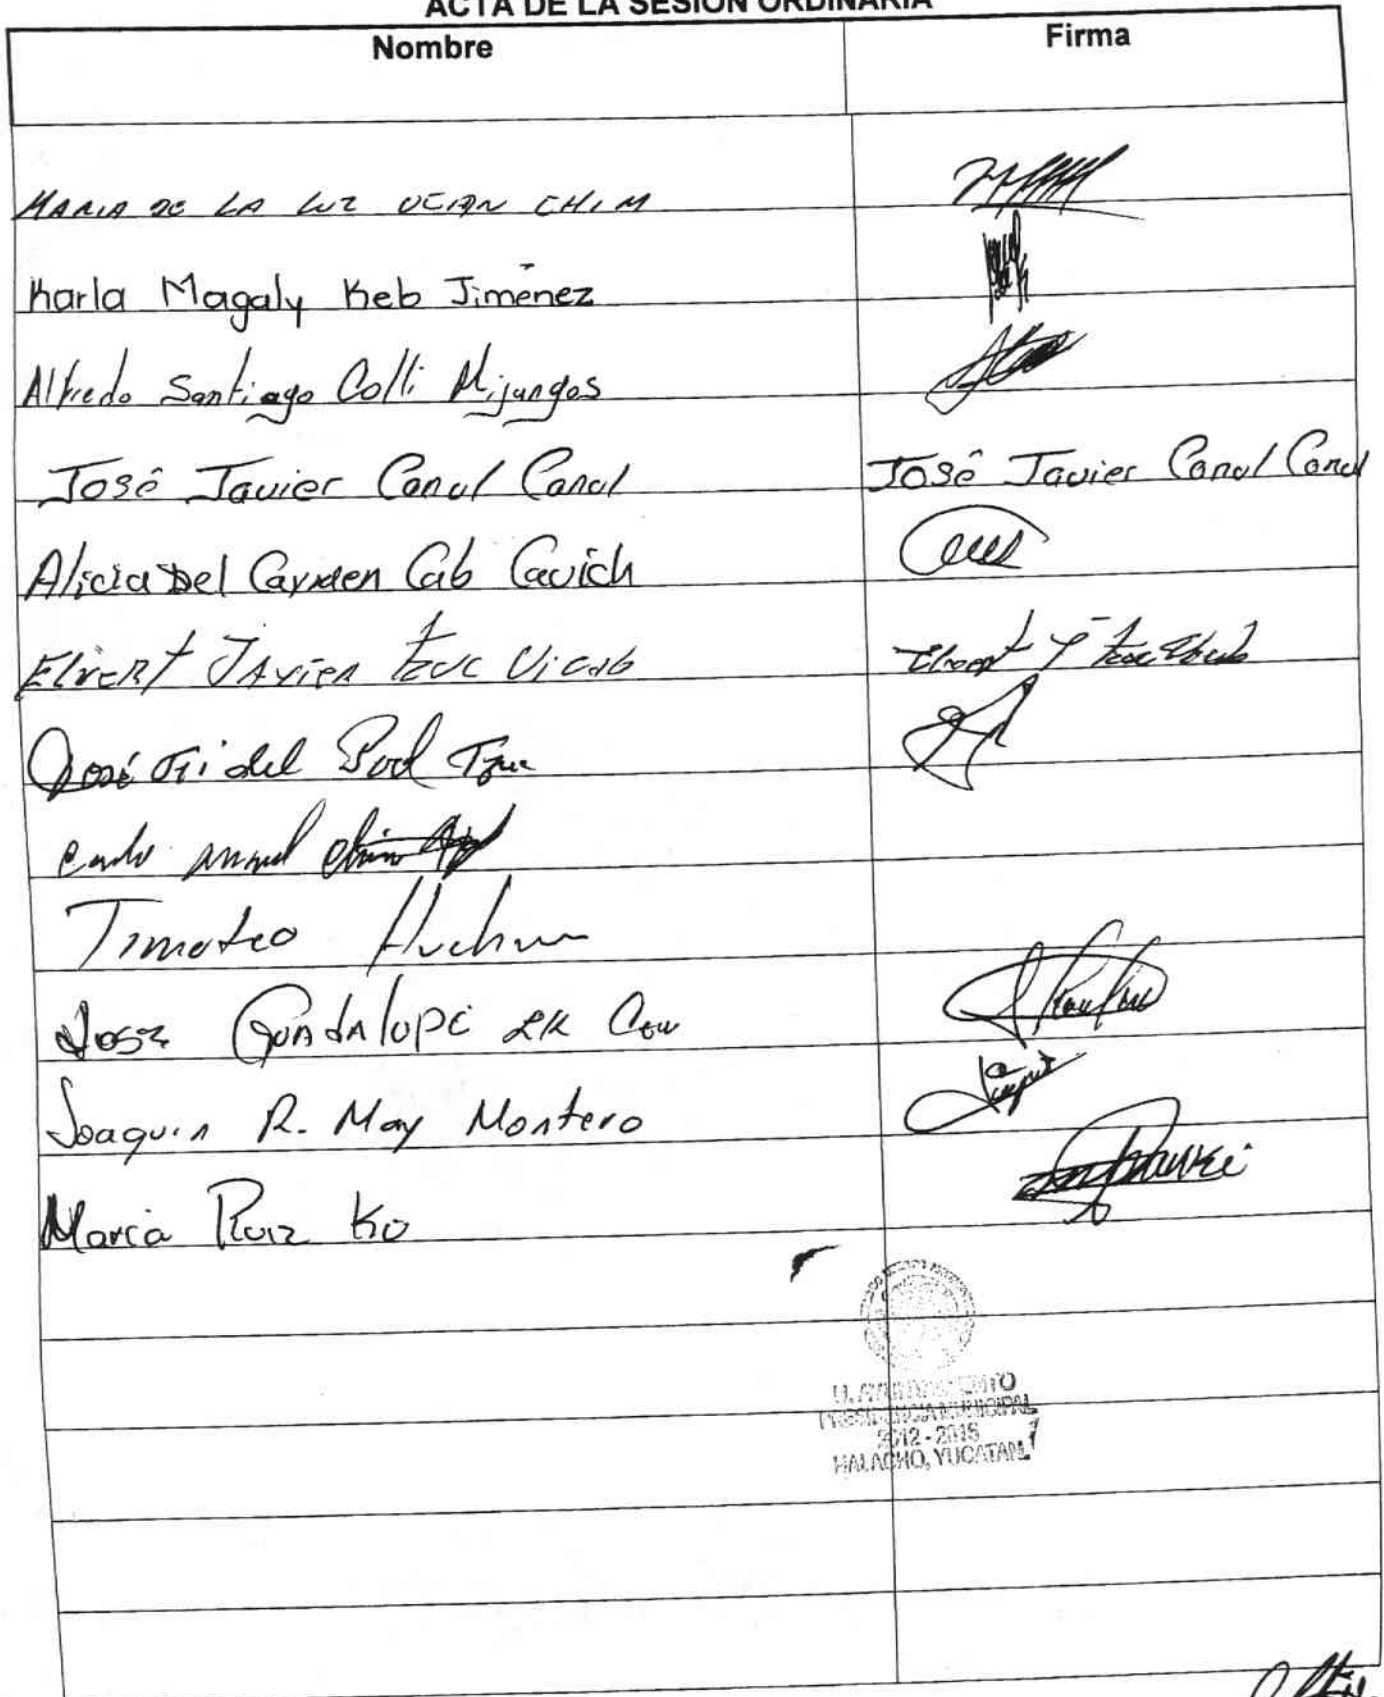 ACTA DE LA SESIÓN ORDINARIA
Nombre Firma
MARIA DE LA LUZ UCAN CHIM
Karla Magaly Keb Jimenez
Alfredo Santiago Colli Mijangos
José Javier Canul Canul José Javier Canul Canul
Alicia Del Carmen Cab Cauich
Elvert Javier Tzuc Vicab
José Fidel Pool Tzuc
Timoteo
Jose Guadalupe
Joaquin R. May Montero
Maria Ruiz Ko
H. AYUNTAMIENTO
PRESIDENCIA MUNICIPAL
2012 - 2015
HALACHO, YUCATAN